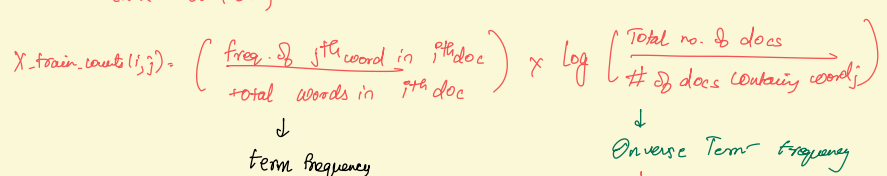 X_train_counts(i,j) = ( freq. of jth word in ith doc / total words in ith doc ) x log ( Total no. of docs / # of docs containing word j )
↓ ↓
term frequency Inverse Term frequency